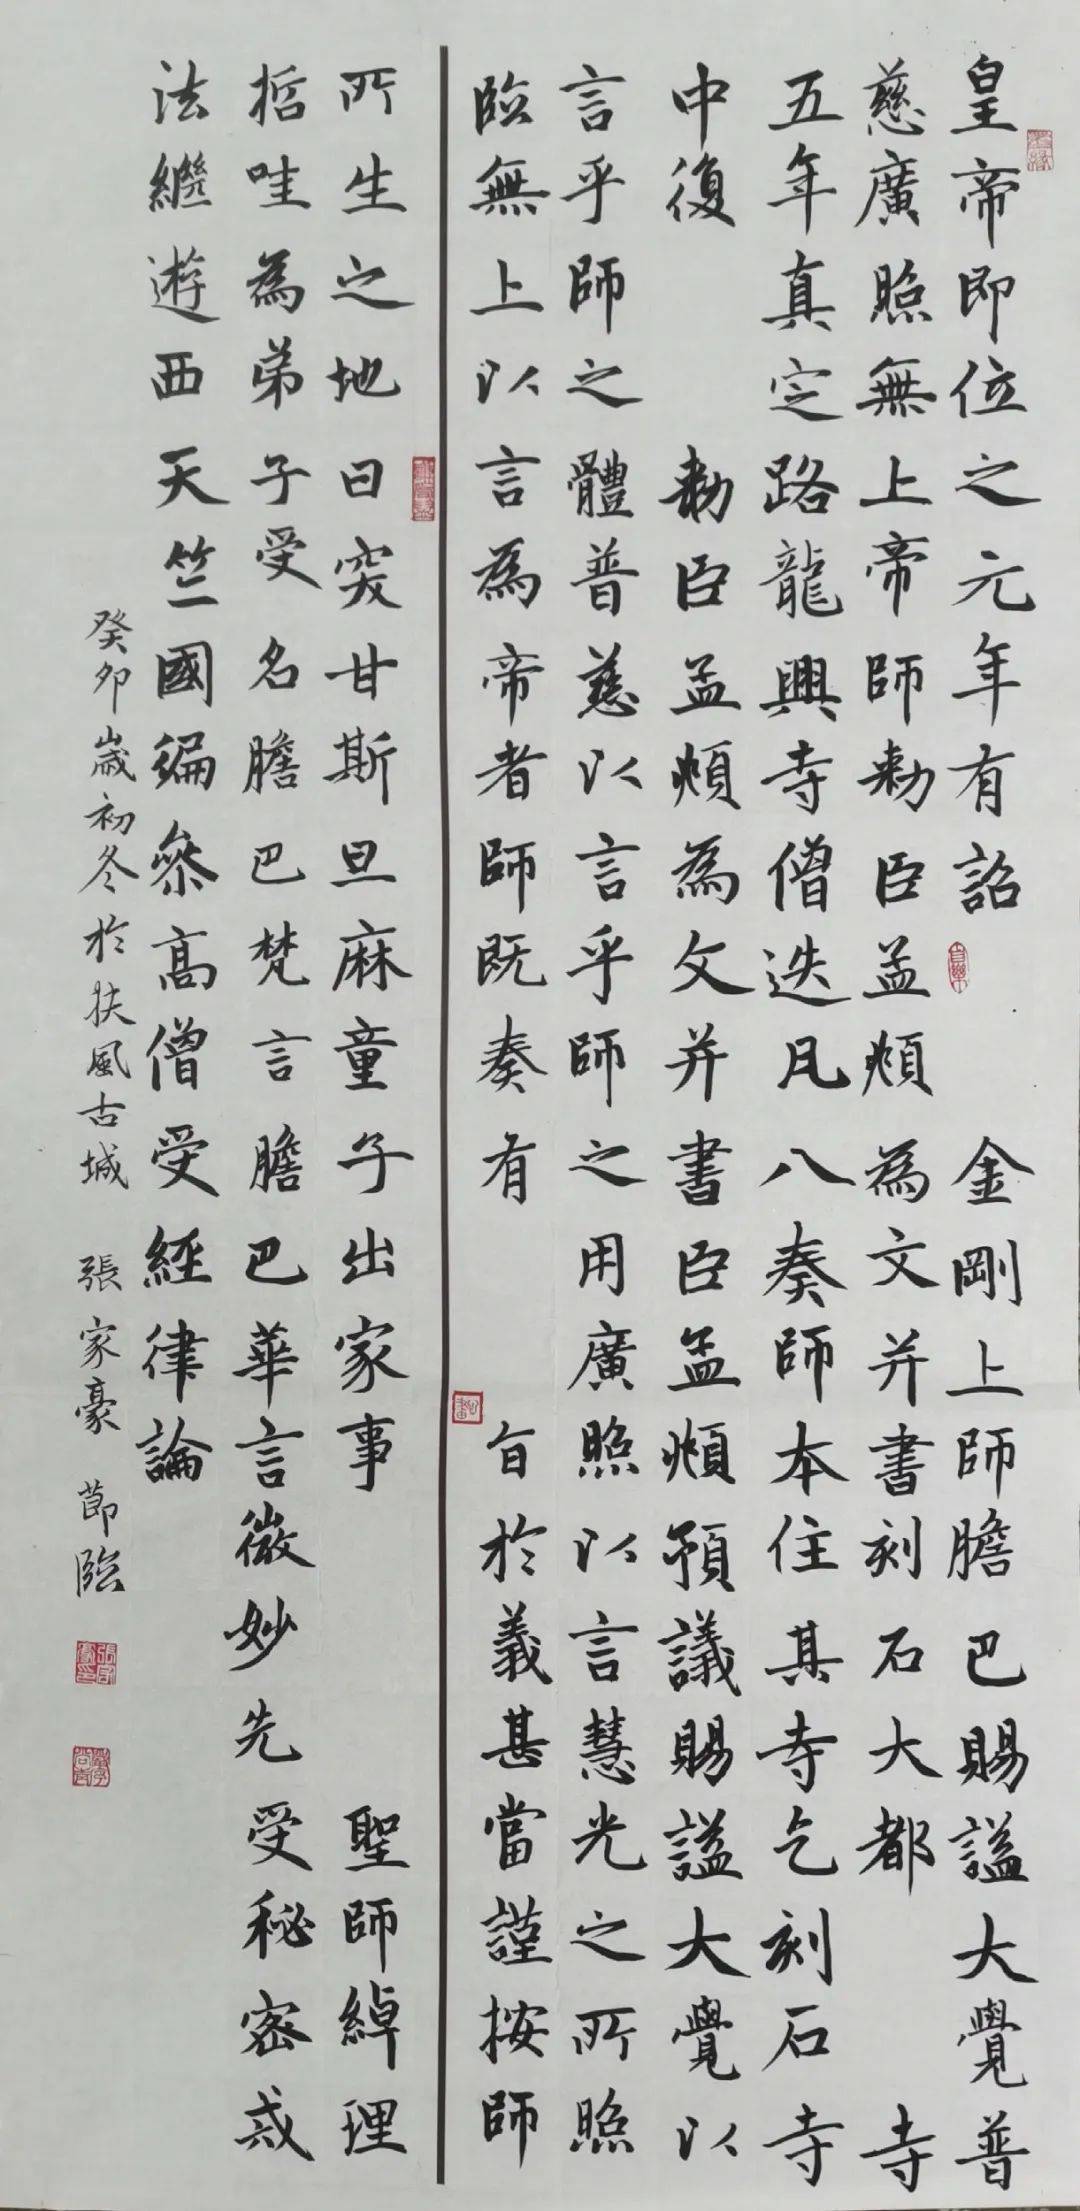 皇帝即位之元年有詔 金剛上師膽巴賜謚大覺普
慈廣照無上帝師勅臣孟頫為文并書刻石大都 寺
五年真定路龍興寺僧迭凡八奏師本住其寺乞刻石寺
中復 勅臣孟頫為文并書臣孟頫預議賜謚大覺以
言乎師之體普慈以言乎師之用廣照以言慧光之所照
臨無上以言為帝者師既奏有 旨於義甚當謹按師
所生之地曰突甘斯旦麻童子出家事 聖師綽理
哲哇為弟子受名膽巴梵言膽巴華言微妙先受秘密戒
法繼遊西天竺國徧參高僧受經律論
癸卯歲初冬於扶風古城 張家豪 節臨